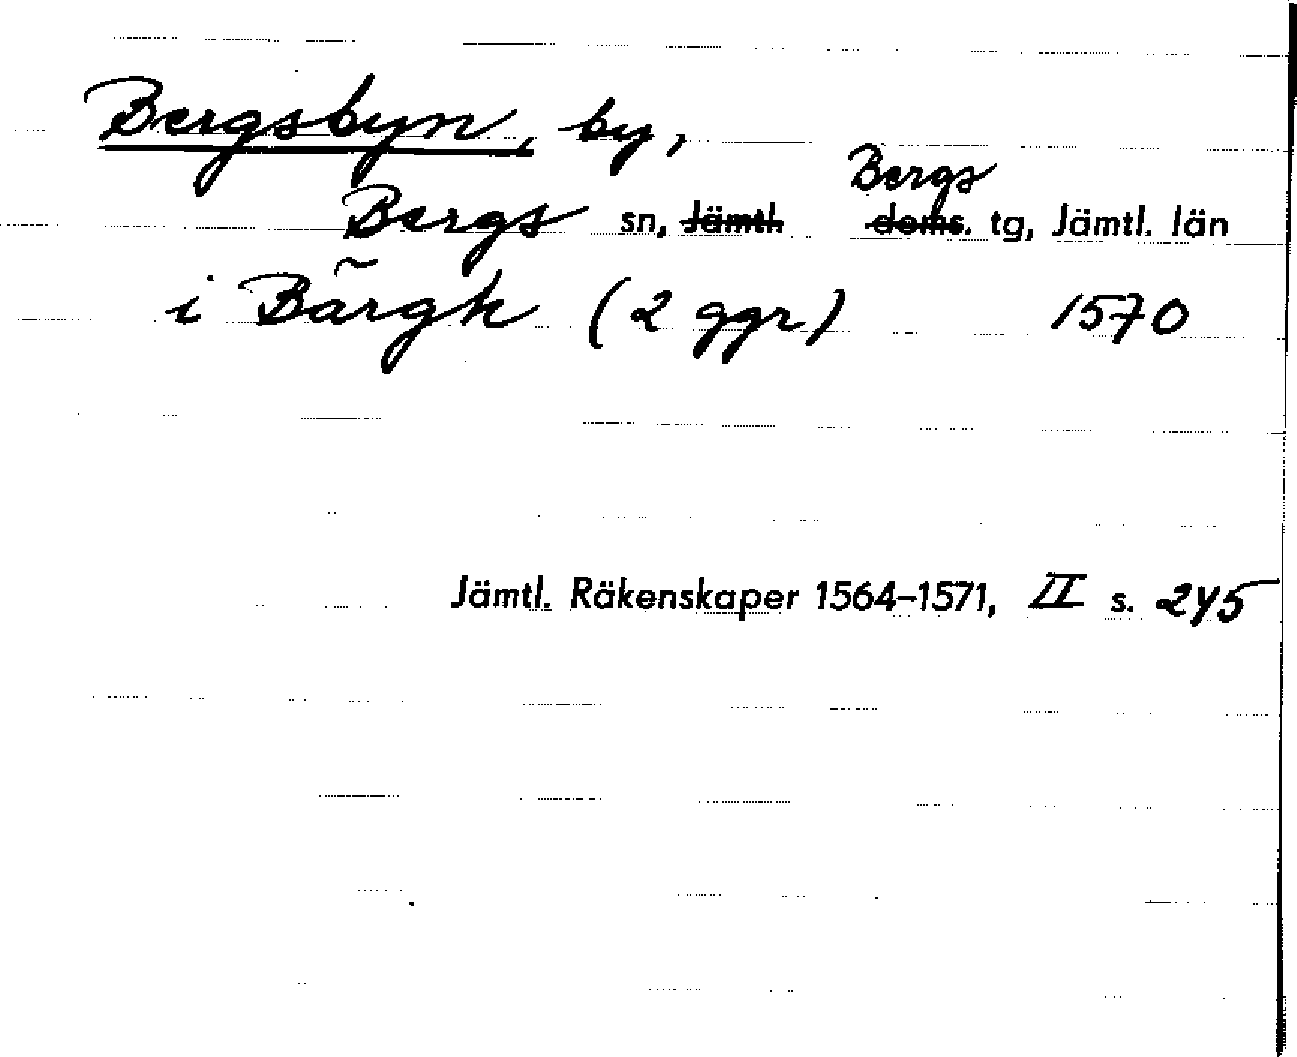 Bergsbyn, by,
Bergs
Bergs sn, Jämtl doms. tg, Jämtl. län
i Bãrgk (2 ggr) 1570
Jämtl. Räkenskaper 1564–1571, II s. 245